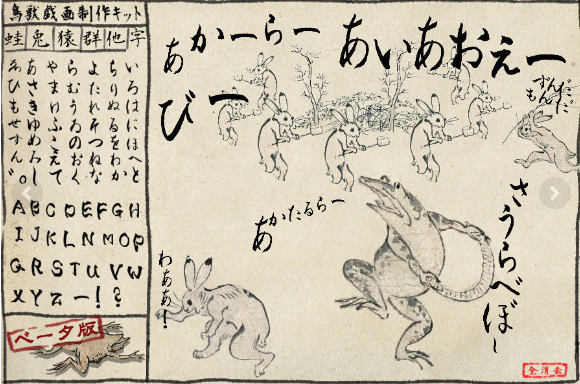 鳥獣戯画制作キット
蛙兎猿群他字
いろはにほへと
ちりぬるをわか
よたれそつねな
らむうゐのおく
やまけふこえて
あさきゆめみし。
ゑひもせすん゛
A B C D E F G H
I J K L N M O P
Q R S T U V W
X Y Z ー ! ?
ベータ版
あいあおえー
あかーらー
びー
さうらべぼー
あかたるらー
わああー!
全消去